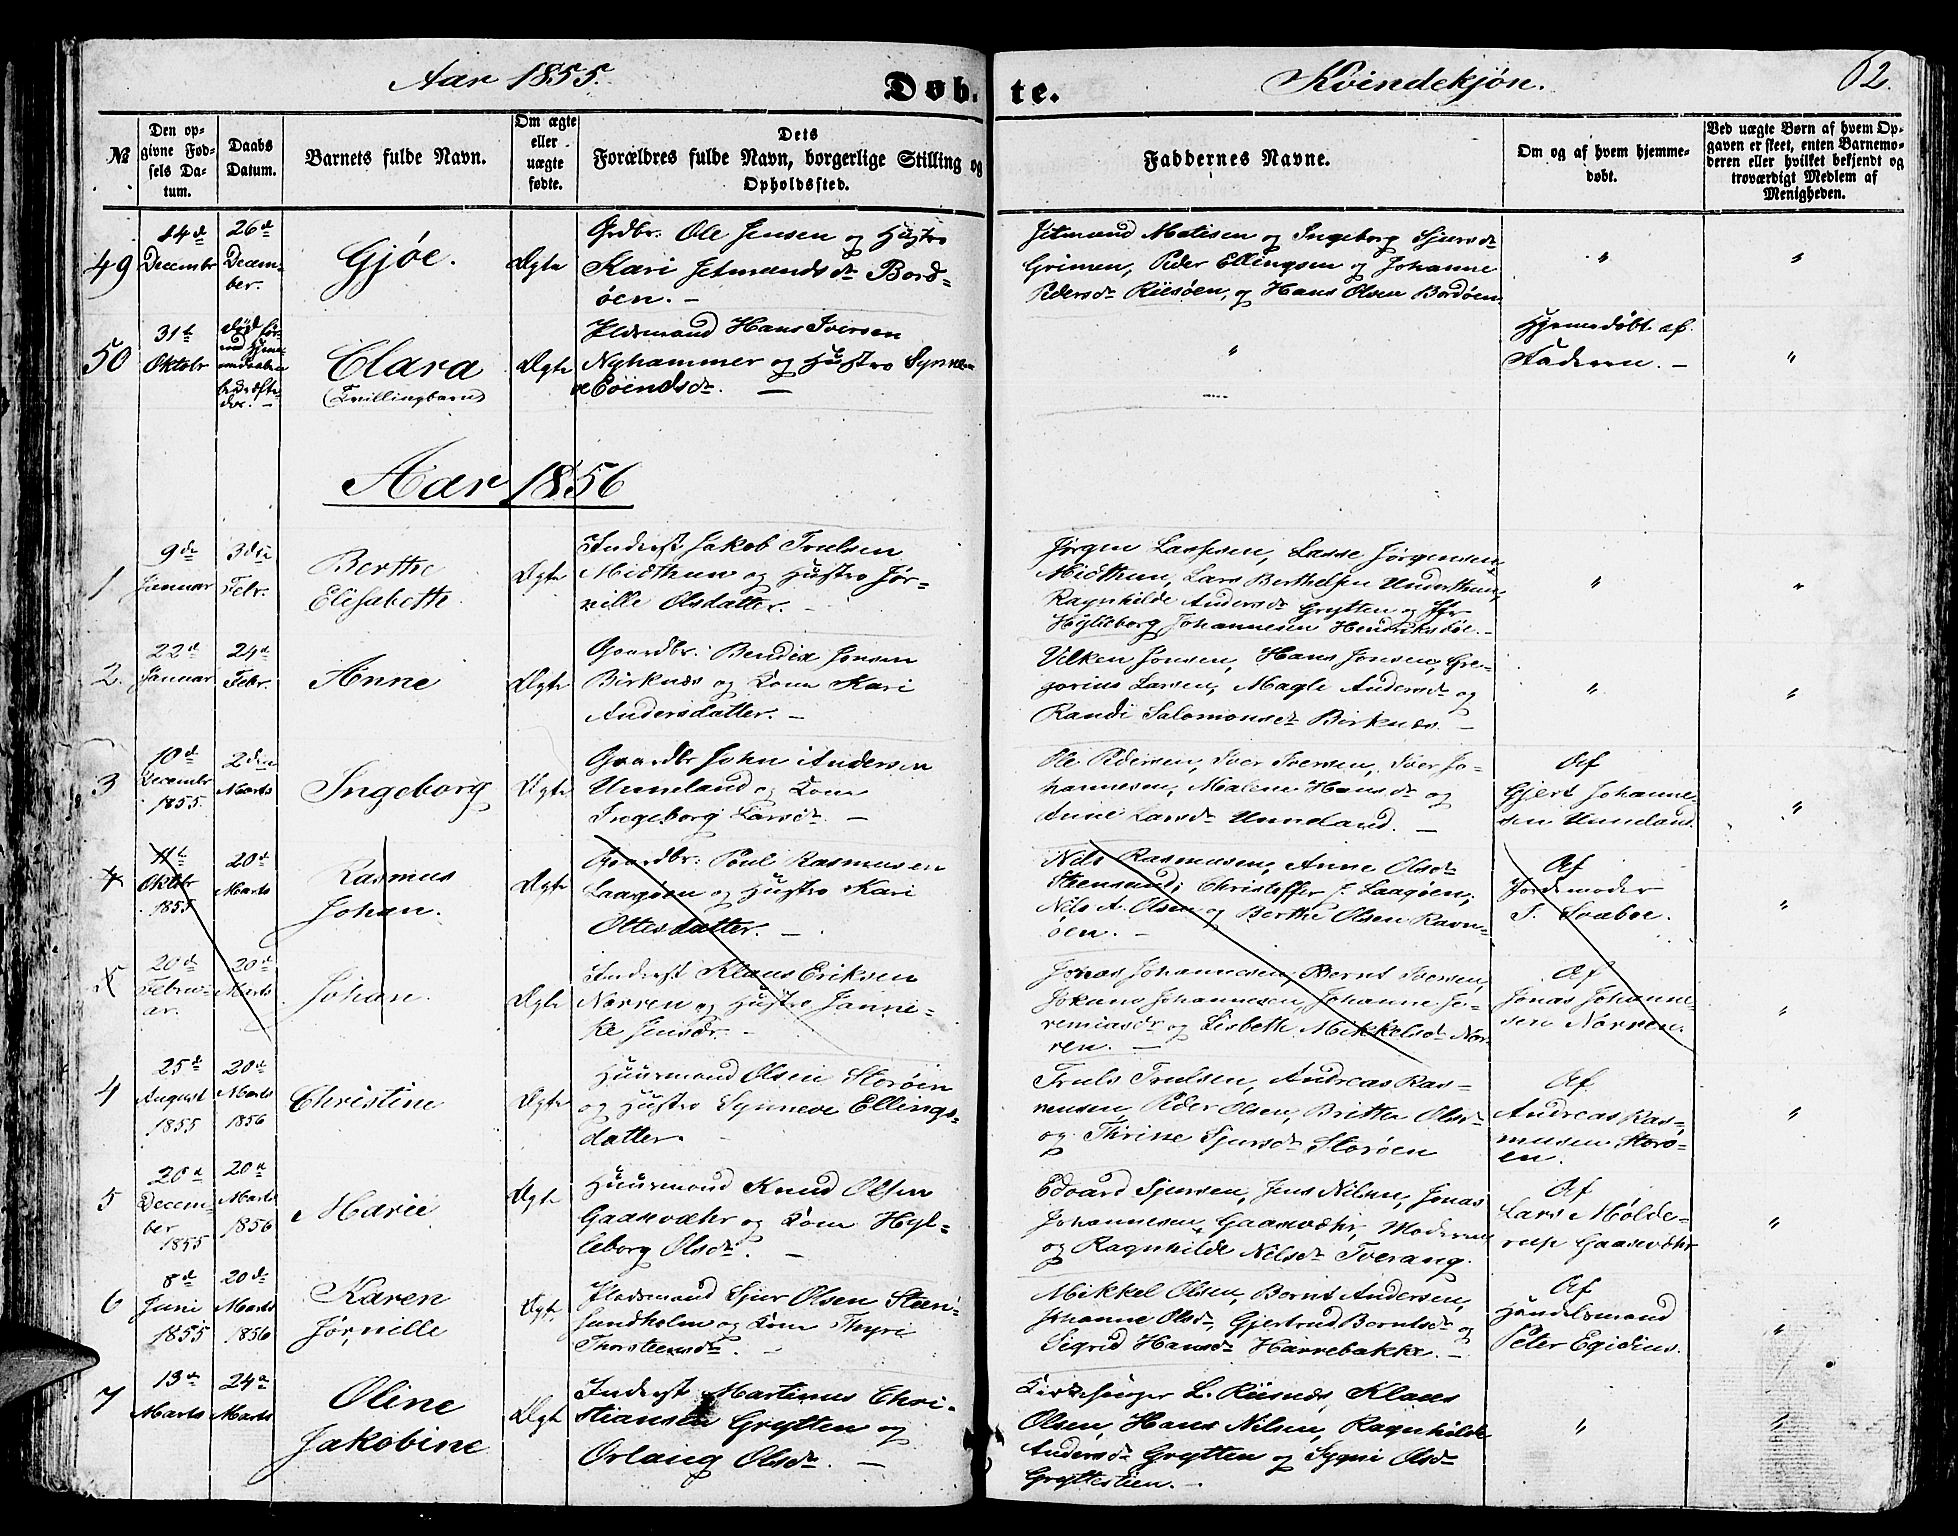 Aar 1855.
Døbte.
Kvindekjøn.
62.
№
Den opgivne Fødsels Datum.
Daabs Datum.
Barnets fulde Navn.
Om ægte eller uægte fødte.
Dets Forældres fulde Navn, borgerlige Stilling og Opholdssted.
Faddernes Navne.
Om og af hvem hjemmedøbt.
Ved uægte Børn af hvem Opgaven er skeet, enten Barnemoderen eller hvilket bekjendt og troværdigt Medlem af Menigheden.
49
14de
Decembr
26de
Decem-
ber.
Gjøe.
Ægte
Grdbr. Ole Jensen og Hustro
Kari Jetmundsdr Bord-
øen. -
Jetmund Matisen og Ingeborg Sjursdr
Grimen, Peder Ellingsen og Johanne
Pedersdr Riisøen, og Hans Olsen Bordøen
"
"
50
31te
Oktobr
Clara
(Tvillingbarn)
Ægte
Pladsmand Hans Iversen
Nyhammer og Hustro Synne-
ve Eøindsdr. -
"
Hjemmedøbt af
Faderen. -
"
Aar 1856
1
9de
Januar
3die
Febr.
Berthe
Elisabeth.
Ægte
Inderst Jakob Trulsen
Midthun og Hustro Jør-
ville Olsdatter. -
Jørgen Lassesen, Lasse Jørgensen
Midthun, Lars Berthelsen Underthun,
Ragnhilde Andersdr Grytten og
Hylleborg Johannesen Hendriksbøe. -
"
"
2.
22de
Januar
24de
Febr.
Anne
Ægte
Gaardbr. Bendix Jonsen
Birknæs og Kone Kari
Andersdatter. -
Vilken Jonsen, Hans Jonsen, Gre-
gorius Larsen, Magle Andersdr og
Randi Salomonsdr Birknæs. -
"
"
3
10de
Decembr
1855.
2den
Marts
Ingeborg
Ægte
Gaardbr John Andersen
Unneland og Kone
Ingeborg Larsdr. -
Ole Pedersen, Iver Iversen, Iver Jo-
hannesen, Malene Hansdr og
Anne Larsdr Unneland. -
Af
Gjert Johanne-
sen Unneland.
"
4
11te
Oktobr
1855
20de
Marts
Rasmus
Johan.
Ægte
Gaardbr. Poul Rasmusen
Laagøen og Hustro Kari
Ottesdatter. -
Nils Rasmusen, Anne Olsdr
Steensund, Christoffer J. Laagøen,
Nils A. Olsen og Berthe Olsen Ravn-
øen. -
Af
Jordemoder
S. Svaboe.
"
5
20de
Febru-
ar.
20de
Marts
Johan.
Ægte
Inderst Klaus Eriksen
Norren og Hustro Janni-
ke Jensdr. -
Jonas Johannesen, Bernt Iversen,
Johans Johannesen, Johanne Je-
remiasdr og Lisbeth Mikkelsdr Nor-
ren. -
Af
Jonas Johanne-
sen Norren.
"
4
25de
August
1855
20de
Marts
1856
Christine
Ægte
Huusmand Olsen Storøen
og Hustro Synneve Ellings-
datter.
Truls Trulsen, Andreas Ras-
musen, Peder Olsen, Britta Olsdr
og Thrine Sjursdr Storøen
Af
Andreas Ras-
musen Storø-
en.
"
5
20de
Decem-
ber
1855
20de
Marts
1856
Marie
Ægte
Huusmand Knud Olsen
Gaasevæhr og Kone Hyl-
leborg Olsdr. -
Edvard Sjursen, Jens Nilsen, Jonas
Johannesen Gaasevæhr, Moderen
og Ragnhilde Nilsdr Tverang.
Af
Lars Mølde-
rup Gaasevæhr
"
6
8de
Juni
1855
20de
Marts
1856
Karen
Jørnille
Ægte
Pladsmand Sjur Olsen Steen-
sundholm og Kone Thyri
Thorsteensdr. -
Mikkel Olsen, Bernt Andersen,
Johanne Olsdr, Gjertrud Berntsdr og
Sigrid Hansdr Harrebakke. -
Af
Handelsmand
Peter Egidius.
"
7
13de
Marts
24de
Marts
Oline
Jakobine
Ægte
Inderst Martinus Chri-
stiansen Grytten og
Orlaug Olsdr. -
Kirkesanger L. Riisnæs, Klaus
Olsen, Hans Nilsen, Ragnhilde
Andersdr Grytten og Sygni Olsdr
Gryttestien. -
"
"